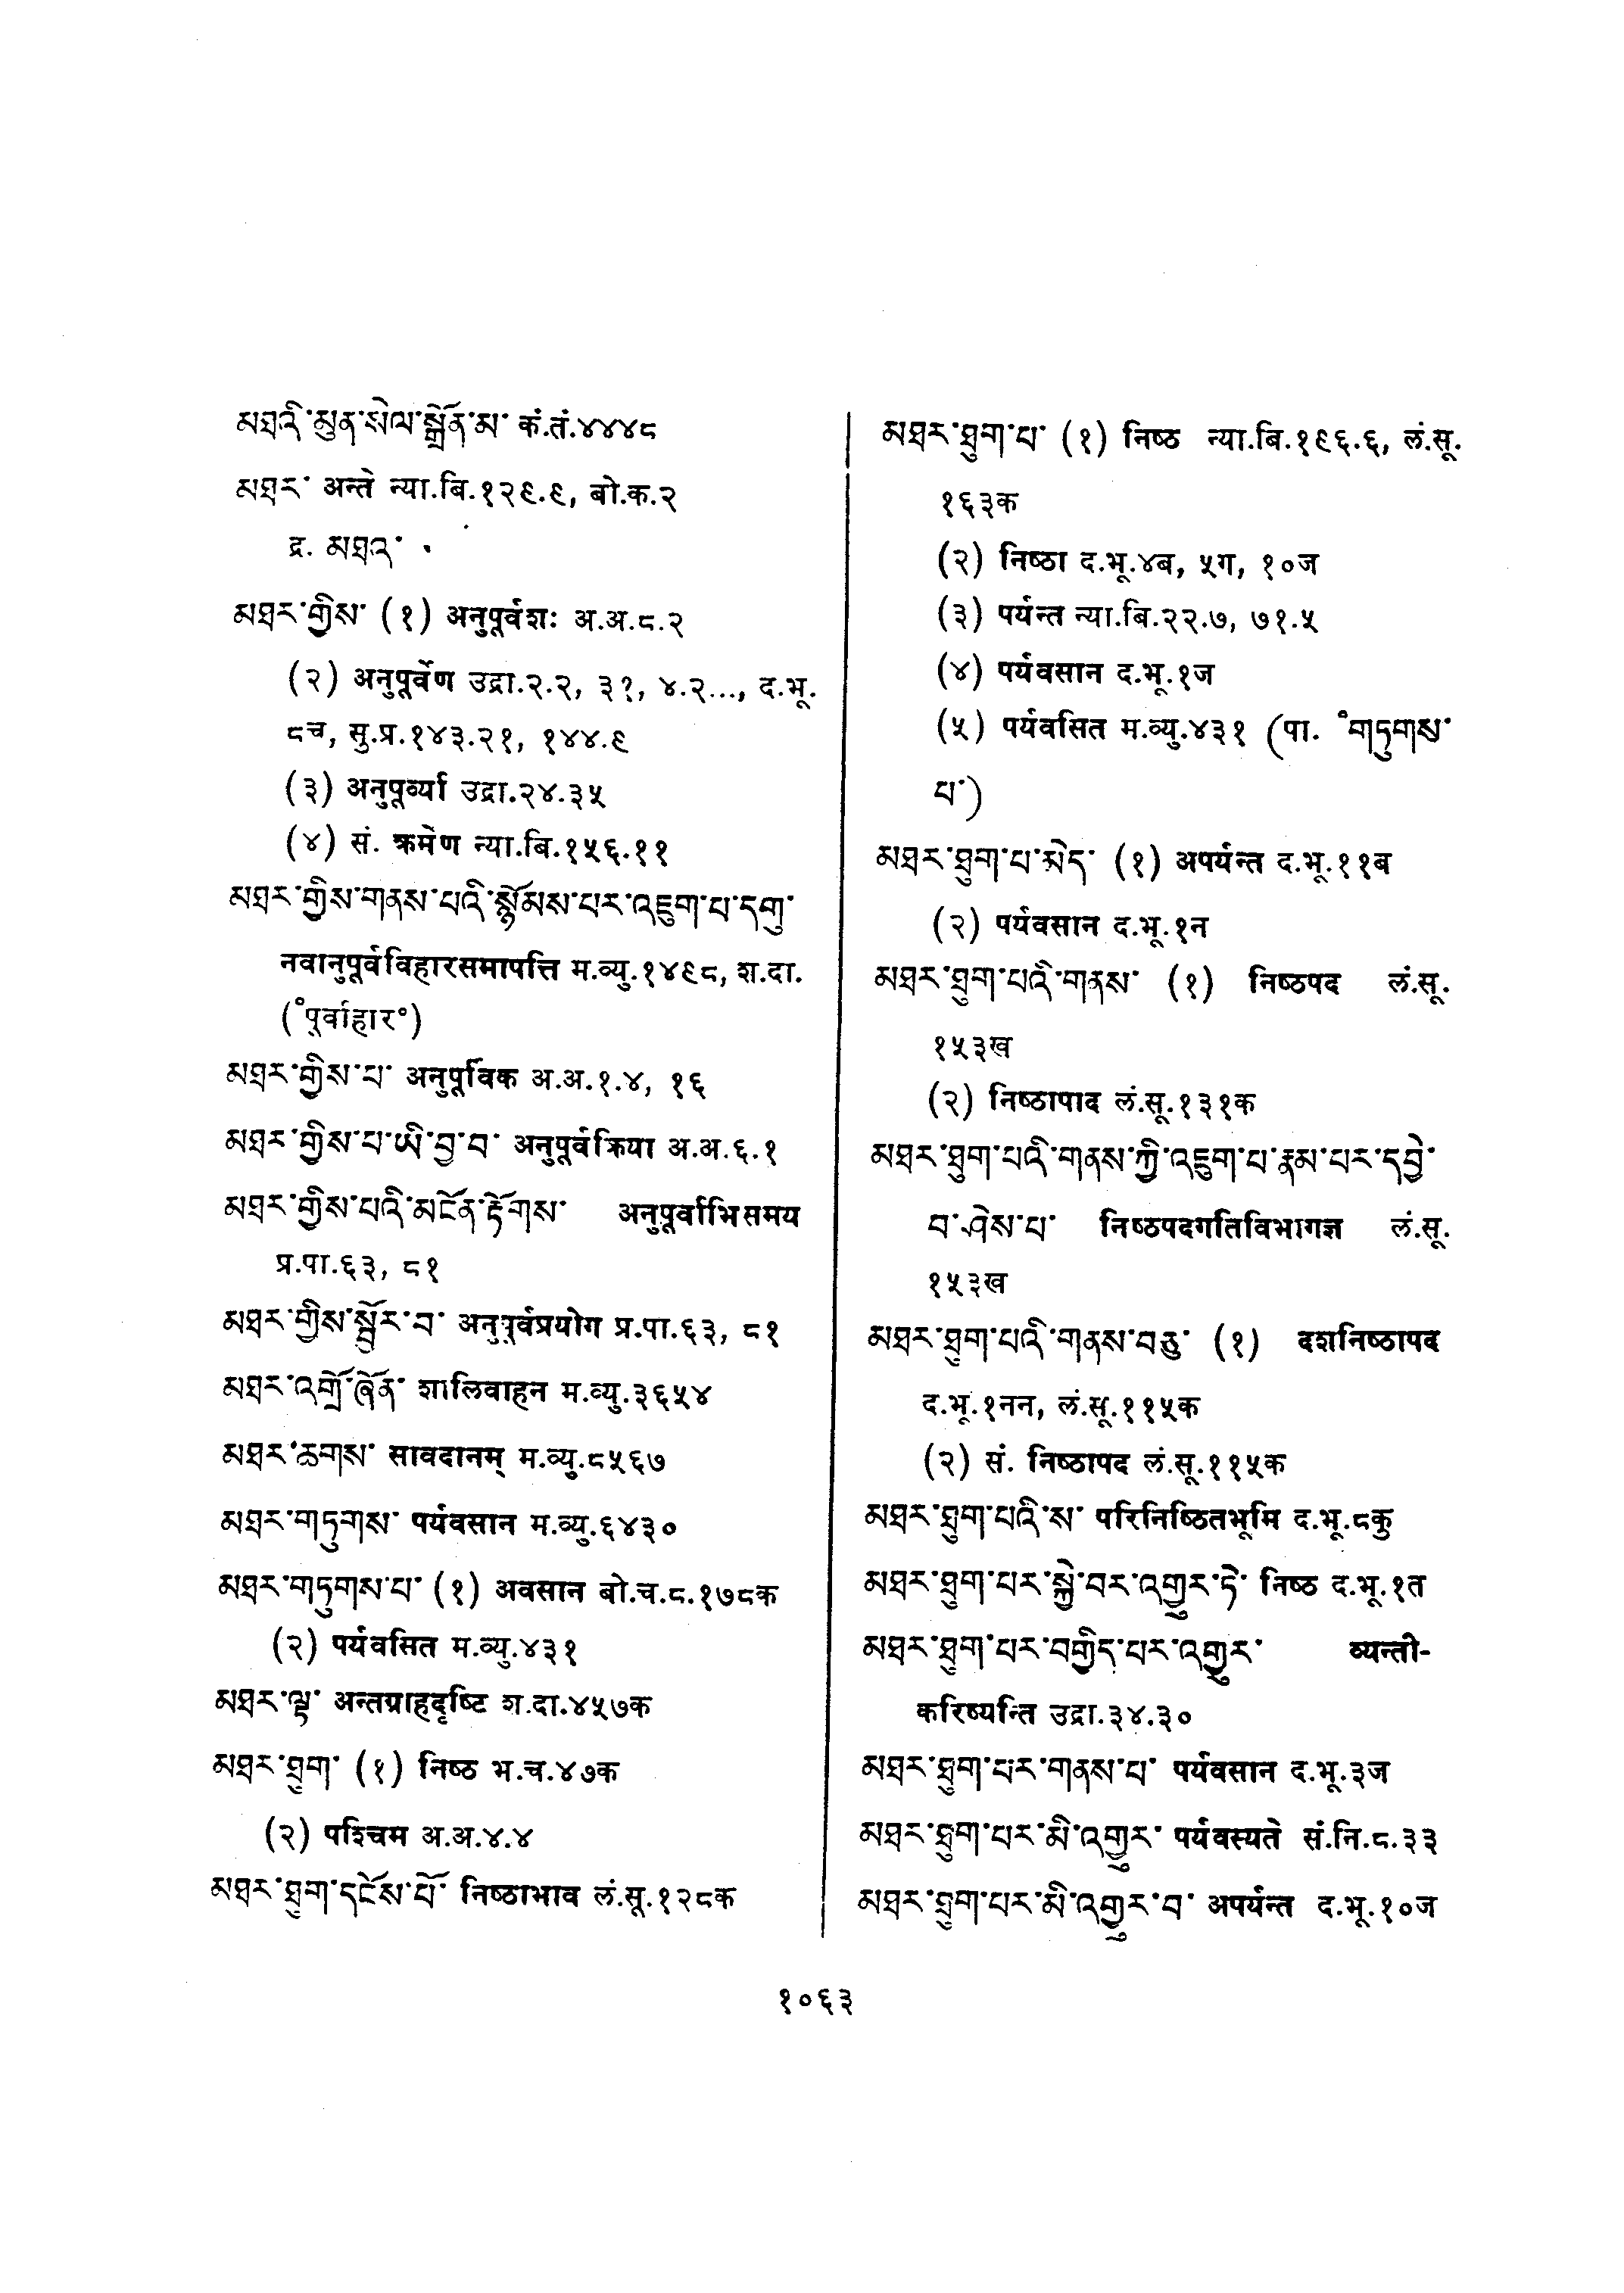 མཐའི་མུན་སེལ་སྒྲོན་མ་ कं.तं.४४४८
མཐར་ अन्ते न्या.बि.१२९.९, बो.क.२
द्र. མཐའ་
མཐར་གྱིས་ (१) अनुपूर्वशः अ.अ.८.२
(२) अनुपूर्वेण उद्रा.२.२, ३१, ४.२..., द.भू.
८च, सु.प्र.१४३.२१, १४४.९
(३) अनुपूर्व्या उद्रा.२४.३५
(४) सं. क्रमेण न्या.बि.१५६.११
མཐར་གྱིས་གནས་པའི་སྙོམས་པར་འཇུག་པ་དགུ་
नवानुपूर्वविहारसमापत्ति म.व्यु.१४९८, श.दा.
(॰पूर्वाहार॰)
མཐར་གྱིས་པ་ अनुपूर्विक अ.अ.१.४, १६
མཐར་གྱིས་པ་ཡི་བྱ་བ་ अनुपूर्वक्रिया अ.अ.६.१
མཐར་གྱིས་པའི་མངོན་རྟོགས་ अनुपूर्वाभिसमय
प्र.पा.६३, ८१
མཐར་གྱིས་སྦྱོར་བ་ अनुपूर्वप्रयोग प्र.पा.६३, ८१
མཐར་འགྲོ་ཞོན་ शालिवाहन म.व्यु.३६५४
མཐར་ཆགས་ सावदानम् म.व्यु.८५६७
མཐར་གཏུགས་ पर्यवसान म.व्यु.६४३०
མཐར་གཏུགས་པ་ (१) अवसान बो.च.८.१७८क
(२) पर्यवसित म.व्यु.४३१
མཐར་ལྟ་ अन्तग्राहदृष्टि श.दा.४५७क
མཐར་ཐུག་ (१) निष्ठ भ.च.४७क
(२) पश्चिम अ.अ.४.४
མཐར་ཐུག་དངོས་པོ་ निष्ठाभाव लं.सू.१२८क
མཐར་ཐུག་པ་ (१) निष्ठ न्या.बि.१९६.६, लं.सू.
१६३क
(२) निष्ठा द.भू.४ब, ५ग, १०ज
(३) पर्यन्त न्या.बि.२२.७, ७१.५
(४) पर्यवसान द.भू.१ज
(५) पर्यवसित म.व्यु.४३१ (पा. ॰གཏུགས་
པ་)
མཐར་ཐུག་པ་མེད་ (१) अपर्यन्त द.भू.११ब
(२) पर्यवसान द.भू.१न
མཐར་ཐུག་པའི་གནས་ (१) निष्ठपद लं.सू.
१५३ख
(२) निष्ठापाद लं.सू.१३१क
མཐར་ཐུག་པའི་གནས་ཀྱི་འཇུག་པ་རྣམ་པར་དབྱེ་
བ་ཤེས་པ་ निष्ठपदगतिविभागज्ञ लं.सू.
१५३ख
མཐར་ཐུག་པའི་གནས་བཅུ་ (१) दशनिष्ठापद
द.भू.१नन, लं.सू.११५क
(२) सं. निष्ठापद लं.सू.११५क
མཐར་ཐུག་པའི་ས་ परिनिष्ठितभूमि द.भू.८कु
མཐར་ཐུག་པར་སྐྱེ་བར་འགྱུར་ཏེ་ निष्ठ द.भू.१त
མཐར་ཐུག་པར་བགྱིད་པར་འགྱུར་ व्यन्ती-
करिष्यन्ति उद्रा.३४.३०
མཐར་ཐུག་པར་གནས་པ་ पर्यवसान द.भू.३ज
མཐར་ཐུག་པར་མི་འགྱུར་ पर्यवस्यते सं.नि.८.३३
མཐར་ཐུག་པར་མི་འགྱུར་བ་ अपर्यन्त द.भू.१०ज
१०६३